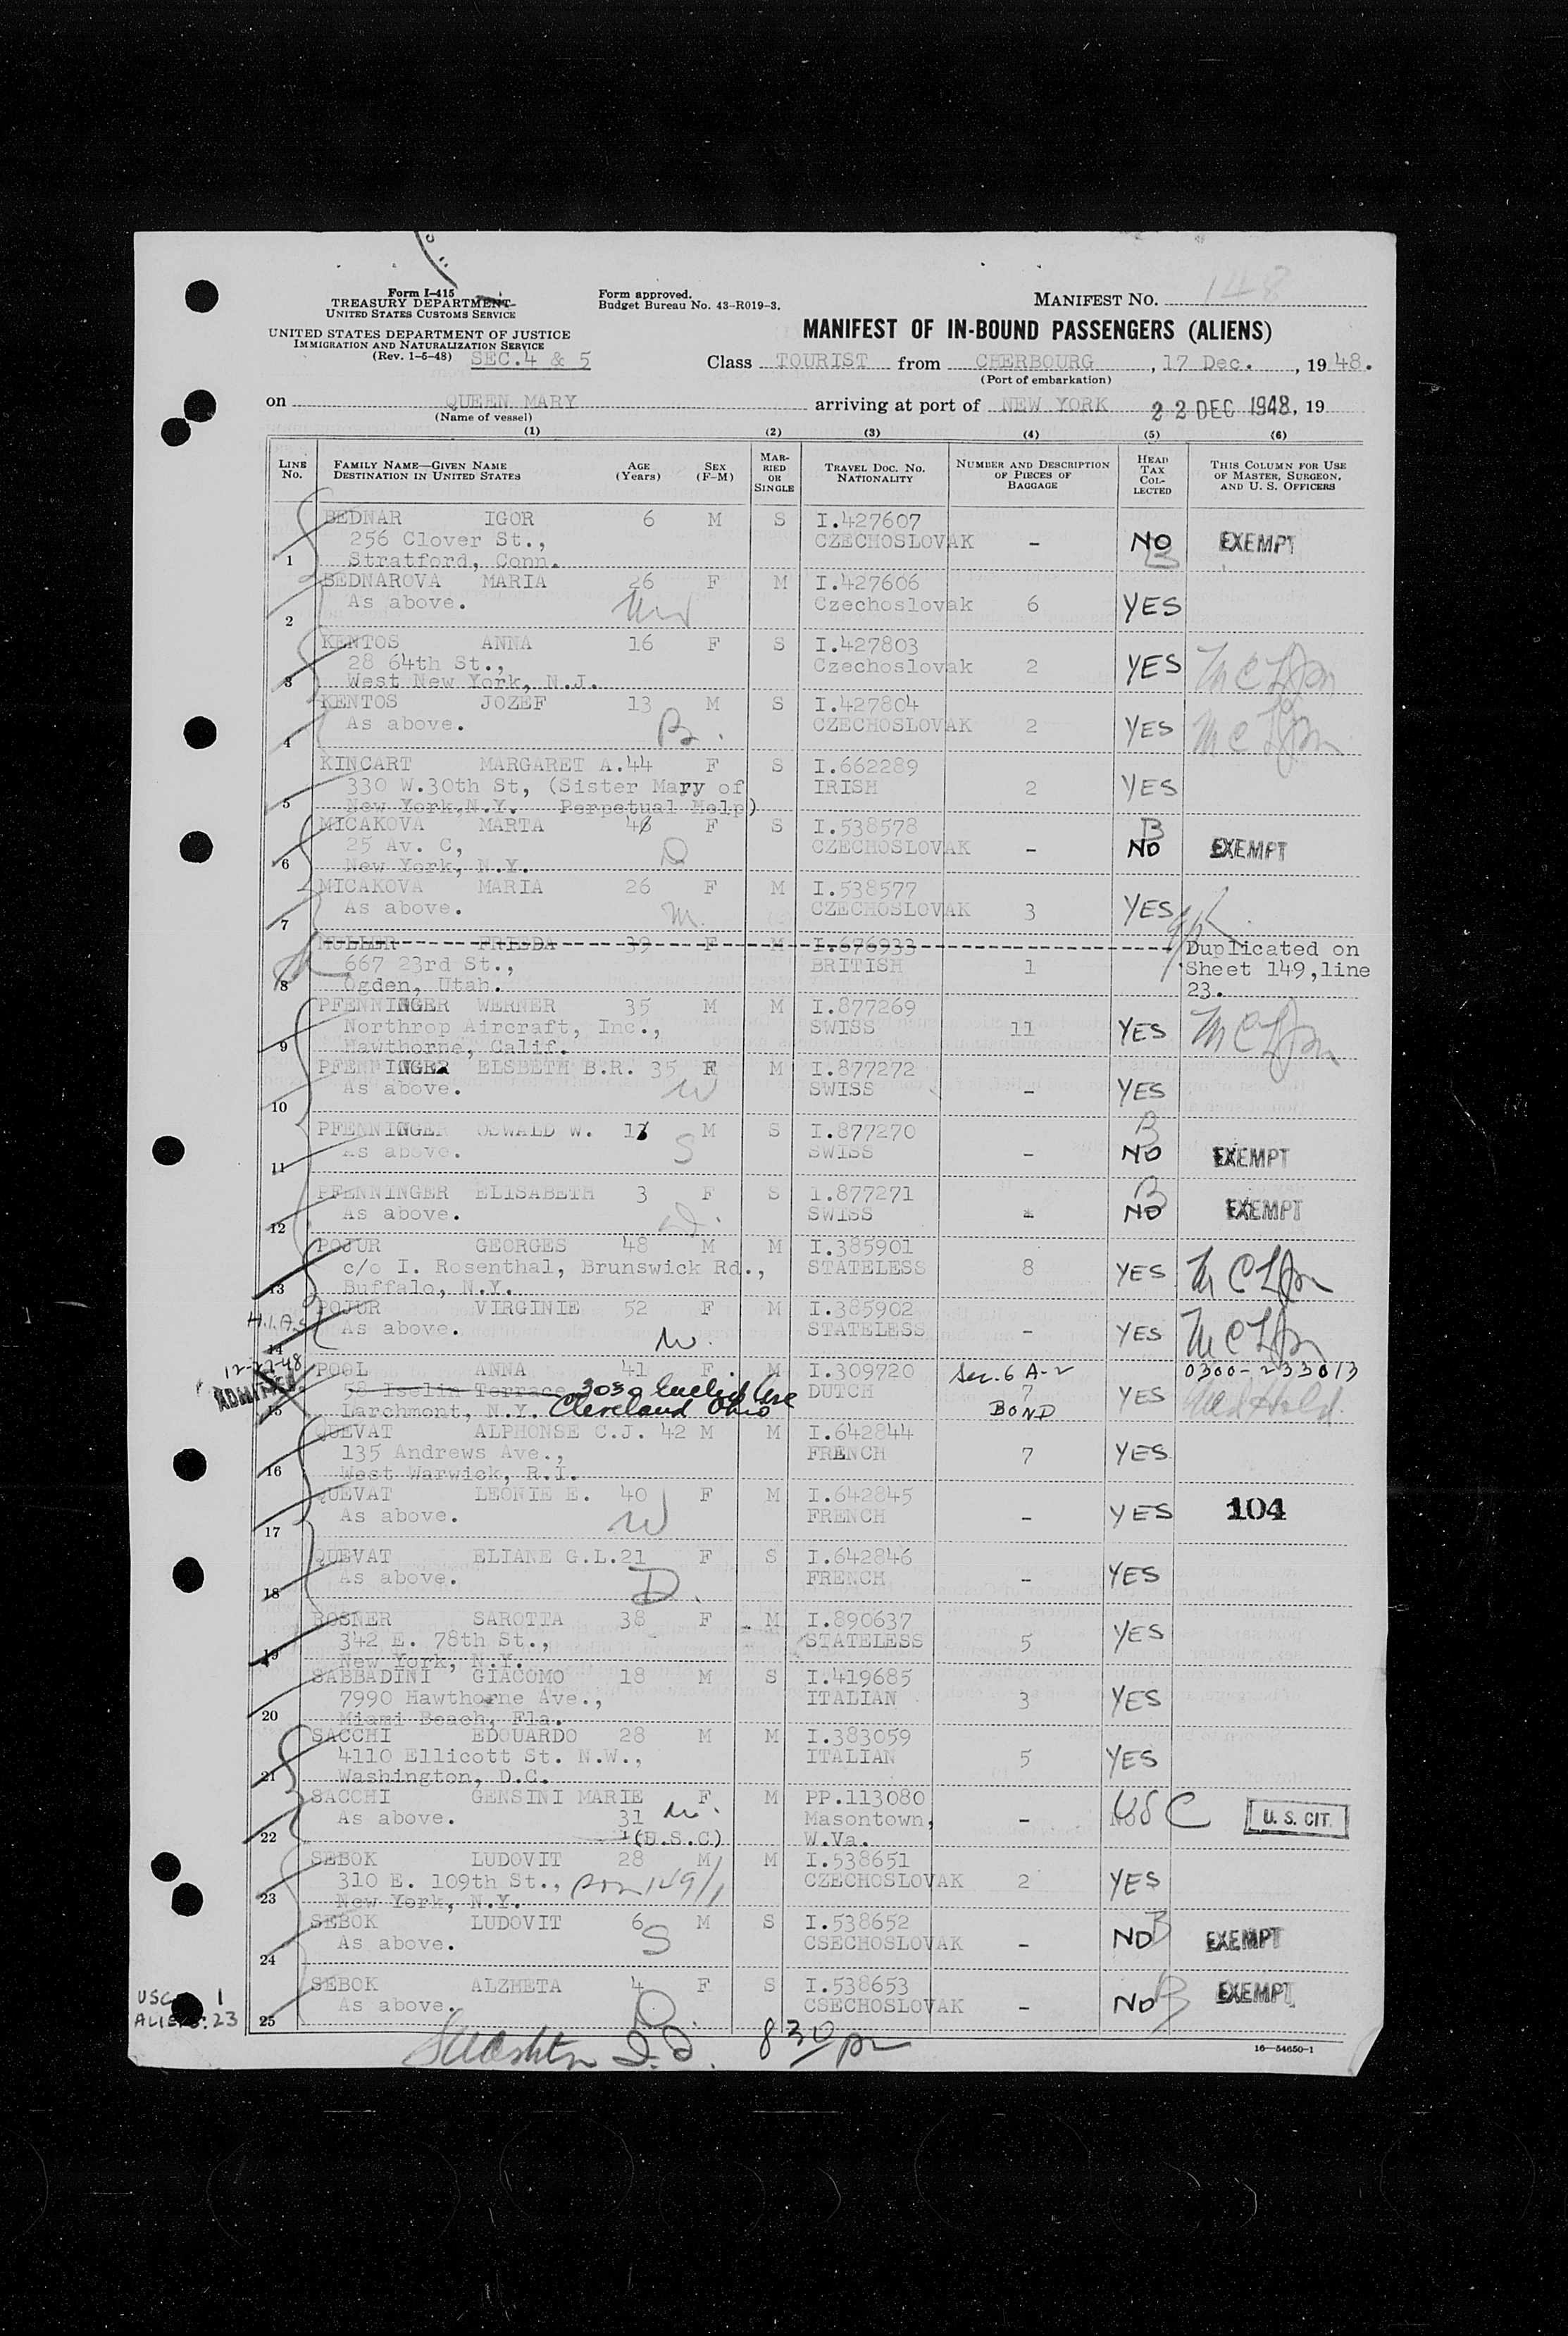 Form I-415
TREASURY DEPARTMENT
UNITED STATES CUSTOMS SERVICE
UNITED STATES DEPARTMENT OF JUSTICE
IMMIGRATION AND NATURALIZATION SERVICE
(Rev. 1-5-48) SEC.4 & 5
Form approved.
Budget Bureau No. 43-R019-3.
MANIFEST NO. 148
MANIFEST OF IN-BOUND PASSENGERS (ALIENS)
Class TOURIST from CHERBOURG, 17 Dec., 1948.
(Port of embarkation)
on QUEEN MARY arriving at port of NEW YORK 22 DEC 1948, 19
(Name of vessel)
(1) (2) (3) (4) (5) (6)
LINE NO. FAMILY NAME—GIVEN NAME DESTINATION IN UNITED STATES AGE (YEARS) SEX (F-M) MARRIED OR SINGLE TRAVEL DOC. NO. NATIONALITY NUMBER AND DESCRIPTION OF PIECES OF BAGGAGE HEAD TAX COLLECTED THIS COLUMN FOR USE OF MASTER, SURGEON, AND U. S. OFFICERS
BEDNAR IGOR 6 M S I.427607
256 Clover St., CZECHOSLOVAK - NO EXEMPT
1 Stratford, Conn.
BEDNAROVA MARIA 26 F M I.427606
As above. Czechoslovak 6 YES
2
KENTOS ANNA 16 F S I.427803
28 64th St., Czechoslovak 2 YES
3 West New York, N.J.
KENTOS JOZEF 13 M S I.427804
As above. CZECHOSLOVAK 2 YES
4 B.
KINCART MARGARET A. 44 F S I.662289
330 W.30th St, (Sister Mary of IRISH 2 YES
5 New York,N.Y. Perpetual Help)
MICAKOVA MARTA F S I.538578 B
25 Av. C, CZECHOSLOVAK - NO EXEMPT
6 New York, N.Y. D
MICAKOVA MARIA 26 F M I.538577
As above. CZECHOSLOVAK 3 YES
7 M.
MULLER FRIEDA 39 F M I.676933 Duplicated on
667 23rd St., BRITISH 1 Sheet 149,line
8 Ogden, Utah. 23.
PFENNINGER WERNER 35 M M I.877269
Northrop Aircraft, Inc., SWISS 11 YES
9 Hawthorne, Calif.
PFENNINGER ELSBETH B.R. 35 F M I.877272
As above. W SWISS - YES
10
PFENNINGER OSWALD W. M S I.877270 B
As above. S SWISS - NO EXEMPT
11
PFENNINGER ELISABETH 3 F S I.877271 B
As above. D. SWISS - NO EXEMPT
12
POJUR GEORGES 48 M M I.385901
c/o I. Rosenthal, Brunswick Rd., STATELESS 8 YES
13 Buffalo, N.Y.
H.I.A.S POJUR VIRGINIE 52 F M I.385902
As above. W. STATELESS - YES
14
12-22-48 POGL ANNA 41 F. M I.309720 Sec. 6 A-2 0300-233013
ADMITTED 58 Iselin Terrace 3030 Euclid Ave DUTCH 7 YES
15 Larchmont, N.Y. Cleveland Ohio BOND
QUEVAT ALPHONSE C.J. 42 M M I.642844
135 Andrews Ave., FRENCH 7 YES
16 West Warwick, R.I.
QUEVAT LEONIE E. 40 F M I.642845
As above. W FRENCH - YES 104
17
QUEVAT ELIANE G.L. 21 F S I.642846
As above. D. FRENCH - YES
18
ROSNER SAROTTA 38 F M I.890637
342 E. 78th St., STATELESS 5 YES
19 New York, N.Y.
SABBADINI GIACOMO 18 M S I.419685
7990 Hawthorne Ave., ITALIAN 3 YES
20 Miami Beach, Fla.
SACCHI EDOUARDO 28 M M I.383059
4110 Ellicott St. N.W., ITALIAN 5 YES
21 Washington, D.C.
SACCHI GENSINI MARIE F M PP.113080
As above. 31 W. Masontown, - USC U. S. CIT.
22 (U.S.C) W.Va.
SEBOK LUDOVIT 28 M M I.538651
310 E. 109th St., 149/1 CZECHOSLOVAK 2 YES
23 New York, N.Y.
SEBOK LUDOVIT 6 M S I.538652
As above. S CSECHOSLOVAK - NO B EXEMPT
24
SEBOK ALZHETA 4 F S I.538653
As above. D. CSECHOSLOVAK - NO B EXEMPT
25
USC 1
ALIENS: 23
8 30 pm
16—54650-1